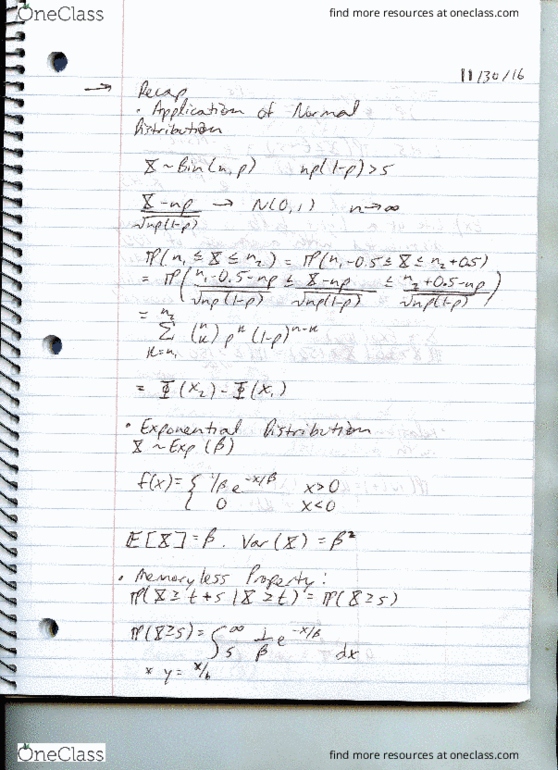 OneClass
find more resources at oneclass.com
11/30/16
→ Recap
• Application of Normal
Distribution
X ~ Bin(n, p)    np(1-p) > 5
X - np / √np(1-p) → N(0,1)    n→∞
P(n₁ ≤ X ≤ n₂) = P(n₁-0.5 ≤ X ≤ n₂+0.5)
= P( n₁-0.5-np / √np(1-p) ≤ X-np / √np(1-p) ≤ n₂+0.5-np / √np(1-p) )
= n₂ Σ k=n₁ (n k) pᵏ (1-p)ⁿ⁻ᵏ
= Φ(x₂) - Φ(x₁)
• Exponential Distribution
X ~ Exp(β)
f(x) = { 1/β e^(-x/β)    x>0
0    x<0
E[X] = β. Var(X) = β²
• Memoryless Property:
P(X ≥ t+s | X ≥ t) = P(X ≥ s)
P(X ≥ s) = ∫ₛ^∞ 1/β e^(-x/β) dx
* y = x/b
OneClass
find more resources at oneclass.com